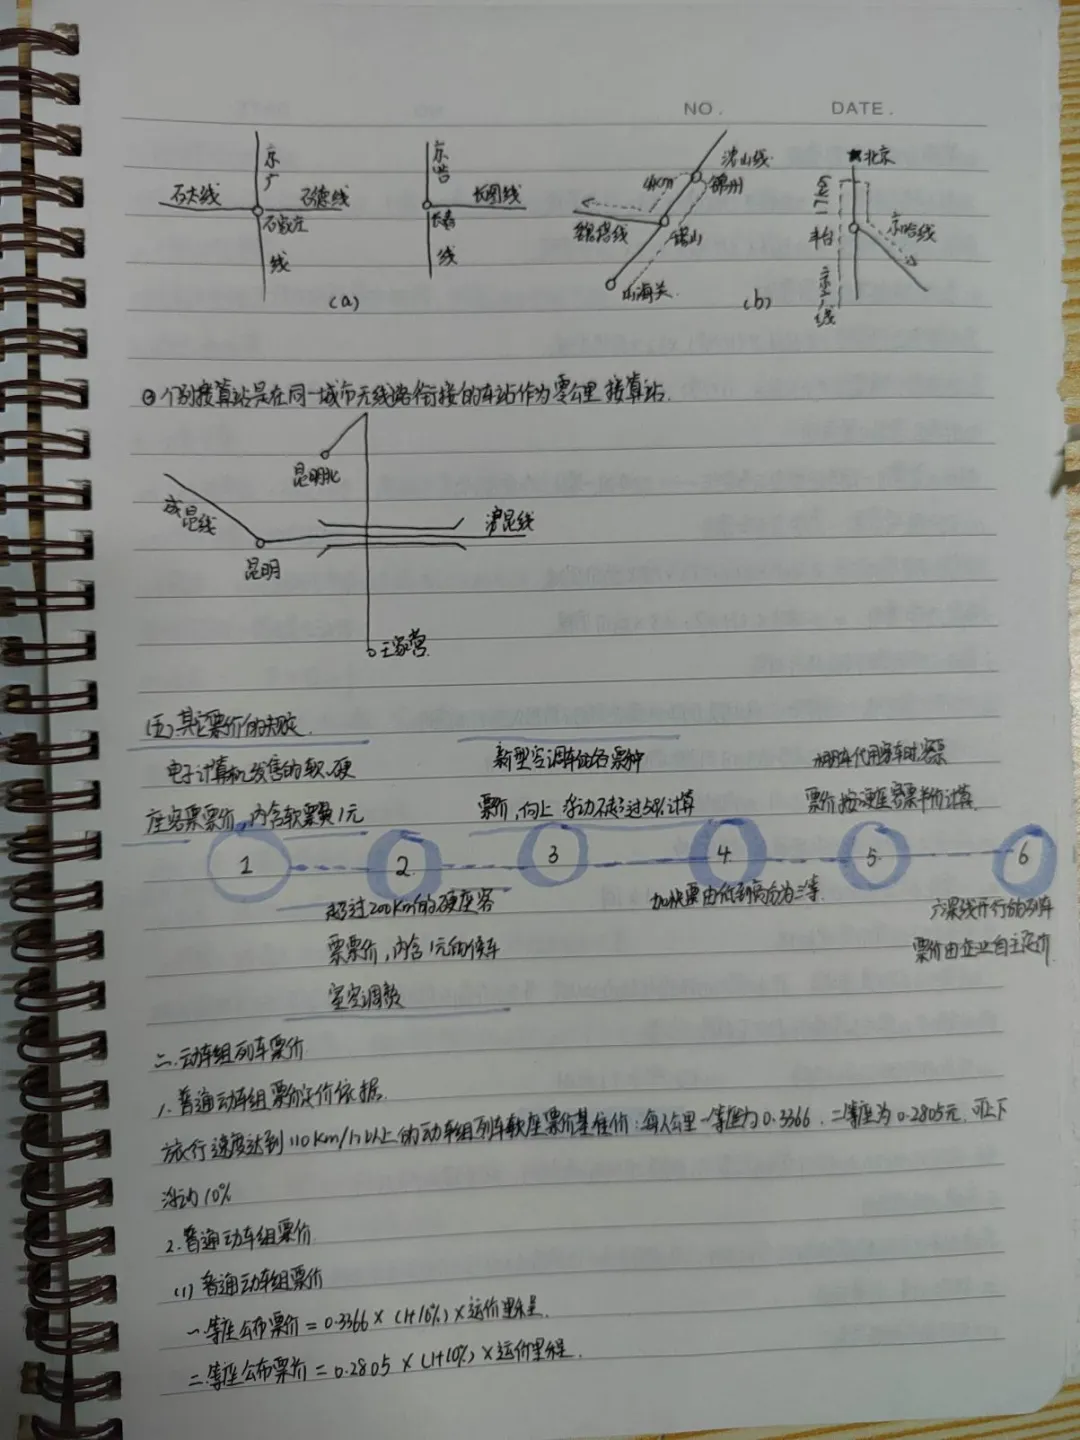 NO. DATE.
京广线
石太线 石德线
石家庄
(a)
京哈线
长图线
长春
沈山线
4km 锦州
魏塔线 锦山
山海关
(b)
北京
17km
丰台 京哈线
京广线
②个别接算站是在同一城市无线路衔接的车站作为零公里接算站.
昆明北
成昆线 沪昆线
昆明
王家营
(五)其它票价的规定.
电子计算机发售的软、硬
座客票票价,内含软票费1元
新型空调车的各票种
票价,向上浮动不超过50%计算
棚车代用客车时,客票
票价按硬座客票半价计算
1 2 3 4 5 6
超过200km的硬座客
票票价,内含1元的候车
室空调款
加快票由低到高分为三等.
六票线开行的列车
票价由企业自主定价
二.动车组列车票价
1.普通动车组票价定价依据.
旅行速度达到110km/h以上的动车组列车软座票价基准价:每人公里一等座为0.3366.二等座为0.2805元,可上下
浮动10%
2.普通动车组票价
(1)普通动车组票价
一等座公布票价=0.3366×(1+10%)×运价里程.
二等座公布票价=0.2805×(1+10%)×运价里程.